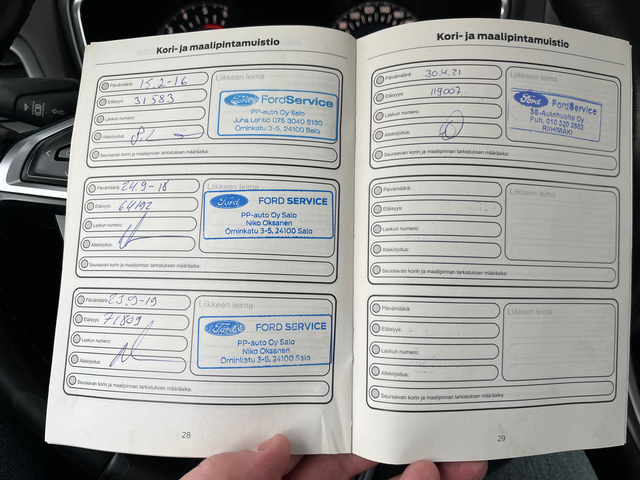 Kori- ja maalipintamuistio
Päivämäärä: 15.2-16
Etäisyys: 31583
Laskun numero:
Allekirjoitus:
Seuraavan korin ja maalipinnan tarkistuksen määräaika:
Liikkeen leima
Ford FordService
PP-auto Oy Salo
Juha Lehtiö 075 3040 5130
Örninkatu 3-5, 24100 Salo
Päivämäärä: 24.9-18
Etäisyys: 64192
Laskun numero:
Allekirjoitus:
Seuraavan korin ja maalipinnan tarkistuksen määräaika:
Liikkeen leima
Ford FORD SERVICE
PP-auto Oy Salo
Niko Oksanen
Örninkatu 3-5, 24100 Salo
Päivämäärä: 23.9-19
Etäisyys: 71809
Laskun numero:
Allekirjoitus:
Seuraavan korin ja maalipinnan tarkistuksen määräaika:
Liikkeen leima
Ford FORD SERVICE
PP-auto Oy Salo
Niko Oksanen
Örninkatu 3-5, 24100 Salo
28
Kori- ja maalipintamuistio
Päivämäärä: 30.4.21
Etäisyys: 119007
Laskun numero:
Allekirjoitus:
Seuraavan korin ja maalipinnan tarkistuksen määräaika:
Liikkeen leima
Ford FordService
SE-Autohuolto Oy
Puh. 010 320 2562
RIIHIMÄKI
Päivämäärä:
Etäisyys:
Laskun numero:
Allekirjoitus:
Seuraavan korin ja maalipinnan tarkistuksen määräaika:
Liikkeen leima
Päivämäärä:
Etäisyys:
Laskun numero:
Allekirjoitus:
Seuraavan korin ja maalipinnan tarkistuksen määräaika:
Liikkeen leima
29